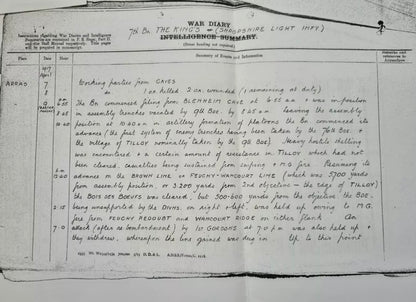 WAR DIARY
7th Bn THE KING'S (SHROPSHIRE LIGHT INFY)
INTELLIGENCE SUMMARY.
(Erase heading not required.)
Instructions regarding War Diaries and Intelligence
Summaries are contained in F. S. Regs., Part II.
and the Staff Manual respectively. Title pages
will be prepared in manuscript.
Place Date Hour Summary of Events and Information Remarks and references to Appendices
1917
April
ARRAS 7 Working parties from CAVES
8 do 1 OR killed 2 OR. wounded (1 remaining at duty)
9 6.55 The Bn commenced filing from BLENHEIM CAVE at 6.55 am & was in position
in assembly trenches vacated by 9th Bde. by 8.25 am leaving the assembly
10.40 position at 10.40 am in artillery formation of platoons the Bn commenced its
advance (the first system of enemy trenches having been taken by the 76th Bde. &
the village of TILLOY nominally taken by the 9th Bde). Heavy hostile shelling
was encountered & a certain amount of resistance in TILLOY which had not
been cleared, casualties being sustained from sniping & M.G. fire. Resuming its
advance on the BROWN LINE or FEUCHY-WANCOURT LINE (which was 5700 yards
from assembly position, or 3.200 yards from 2nd objective - the edge of TILLOY)
the BOIS DES BOEUFS was cleared, but 500-600 yards from the objective the BDE.
being unsupported by the DIVNS. on right & left, was held up owing to M.G.
2.15 fire from FEUCHY REDOUBT and WANCOURT RIDGE on either flank. An
attack (after re bombardment) by 10. GORDONS at 7.0 pm was also held up &
7.0 they withdrew, whereupon the line gained was dug in. Up to this point